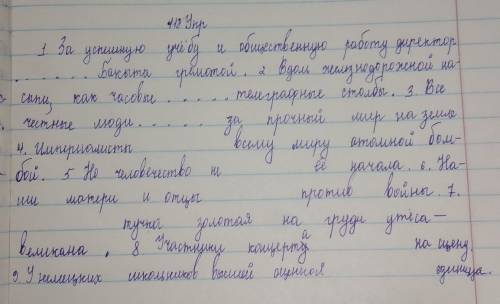 412 Упр
1. За успешную учёбу и общественную работу директор
. . . . . . Бакыта грамотой. 2 Вдоль железнодороженой на-
сыпи, как часовые . . . . . телеграфные столбы. 3. Все
честные люди . . . . . . за прочный мир на земле
4. Империолисты всему миру атомной бом-
бой. 5 Но человечество не её начала. 6. На-
ши матери и отцы против войны. 7.
тучка золотая на груди утёса-
великана. 8. Участники концерта на сцену
9. У немецких школьников высшей оценкой единица.